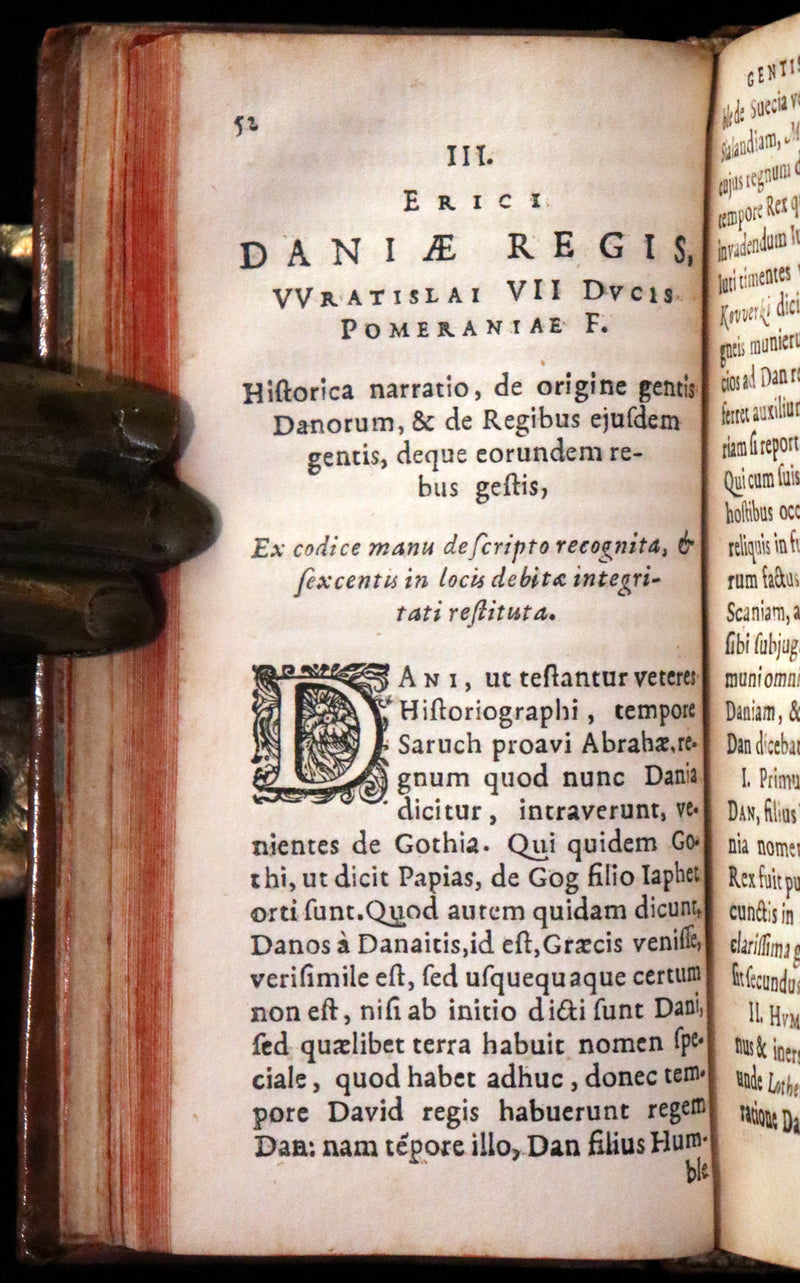 52
III.
ERICI
DANIÆ REGIS,
VVRATISLAI VII DVCIS
POMERANIAE F.
Hiſtorica narratio, de origine gentis
Danorum, & de Regibus ejuſdem
gentis, deque eorundem re-
bus geſtis,
Ex codice manu deſcripto recognita, &
ſexcentis in locis debitæ integri-
tati reſtituta.
DANI, ut teſtantur veteres
Hiſtoriographi, tempore
Saruch proavi Abrahæ, re-
gnum quod nunc Dania
dicitur, intraverunt, ve-
nientes de Gothia. Qui quidem Go-
thi, ut dicit Papias, de Gog filio Iaphet
orti ſunt. Quod autem quidam dicunt,
Danos à Danaitis, id eſt, Græcis veniſſe,
veriſimile eſt, ſed uſquequaque certum
non eſt, niſi ab initio dicti ſunt Dani,
ſed quælibet terra habuit nomen ſpe-
ciale, quod habet adhuc, donec tem-
pore David regis habuerunt regem
Dan: nam tẽpore illo, Dan filius Hum-
ble
GENTIS
de Suecia
ſialandiam,
cujus regnum
tempore Rex
invadendum
timentes
dici
munieru
cios ad Dan
ferret auxilium
riam ſi report
Qui cum ſuis
hoſtibus occ
reliquis in
rum factus
Scaniam, a
ſibi ſubjug
muni omni
Daniam, &
Dan dicebat
I. Primu
DAN, filius
nia nomen
Rex fuit pu
cunctis in
clariſſima g
ſit ſecundus
II. HVM
nus & iners
unde Lothe
ratione Da